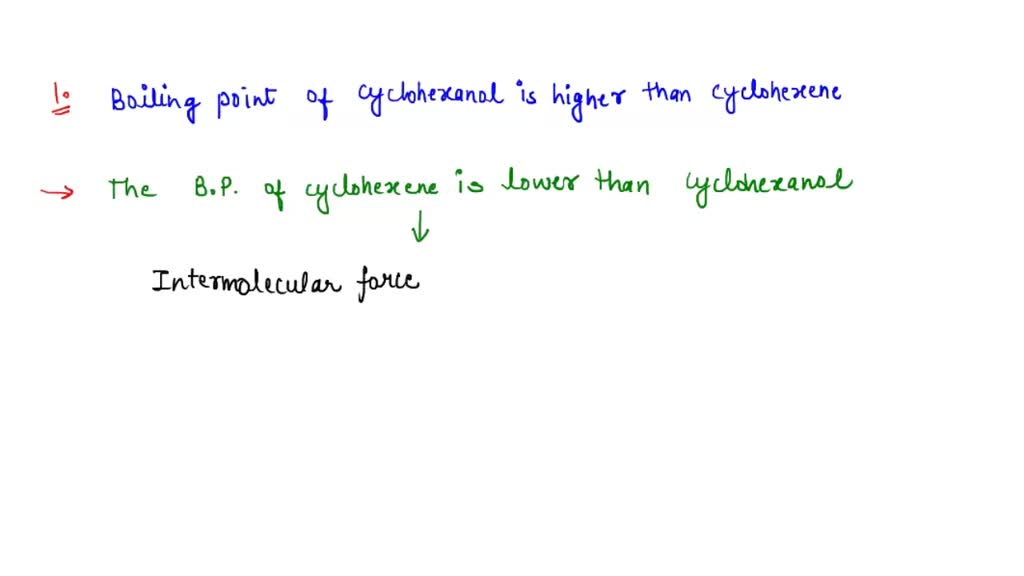 1. Boiling point of cyclohexanol is higher than cyclohexene
→ The B.P. of cyclohexene is lower than cyclohexanol
↓
Intermolecular force